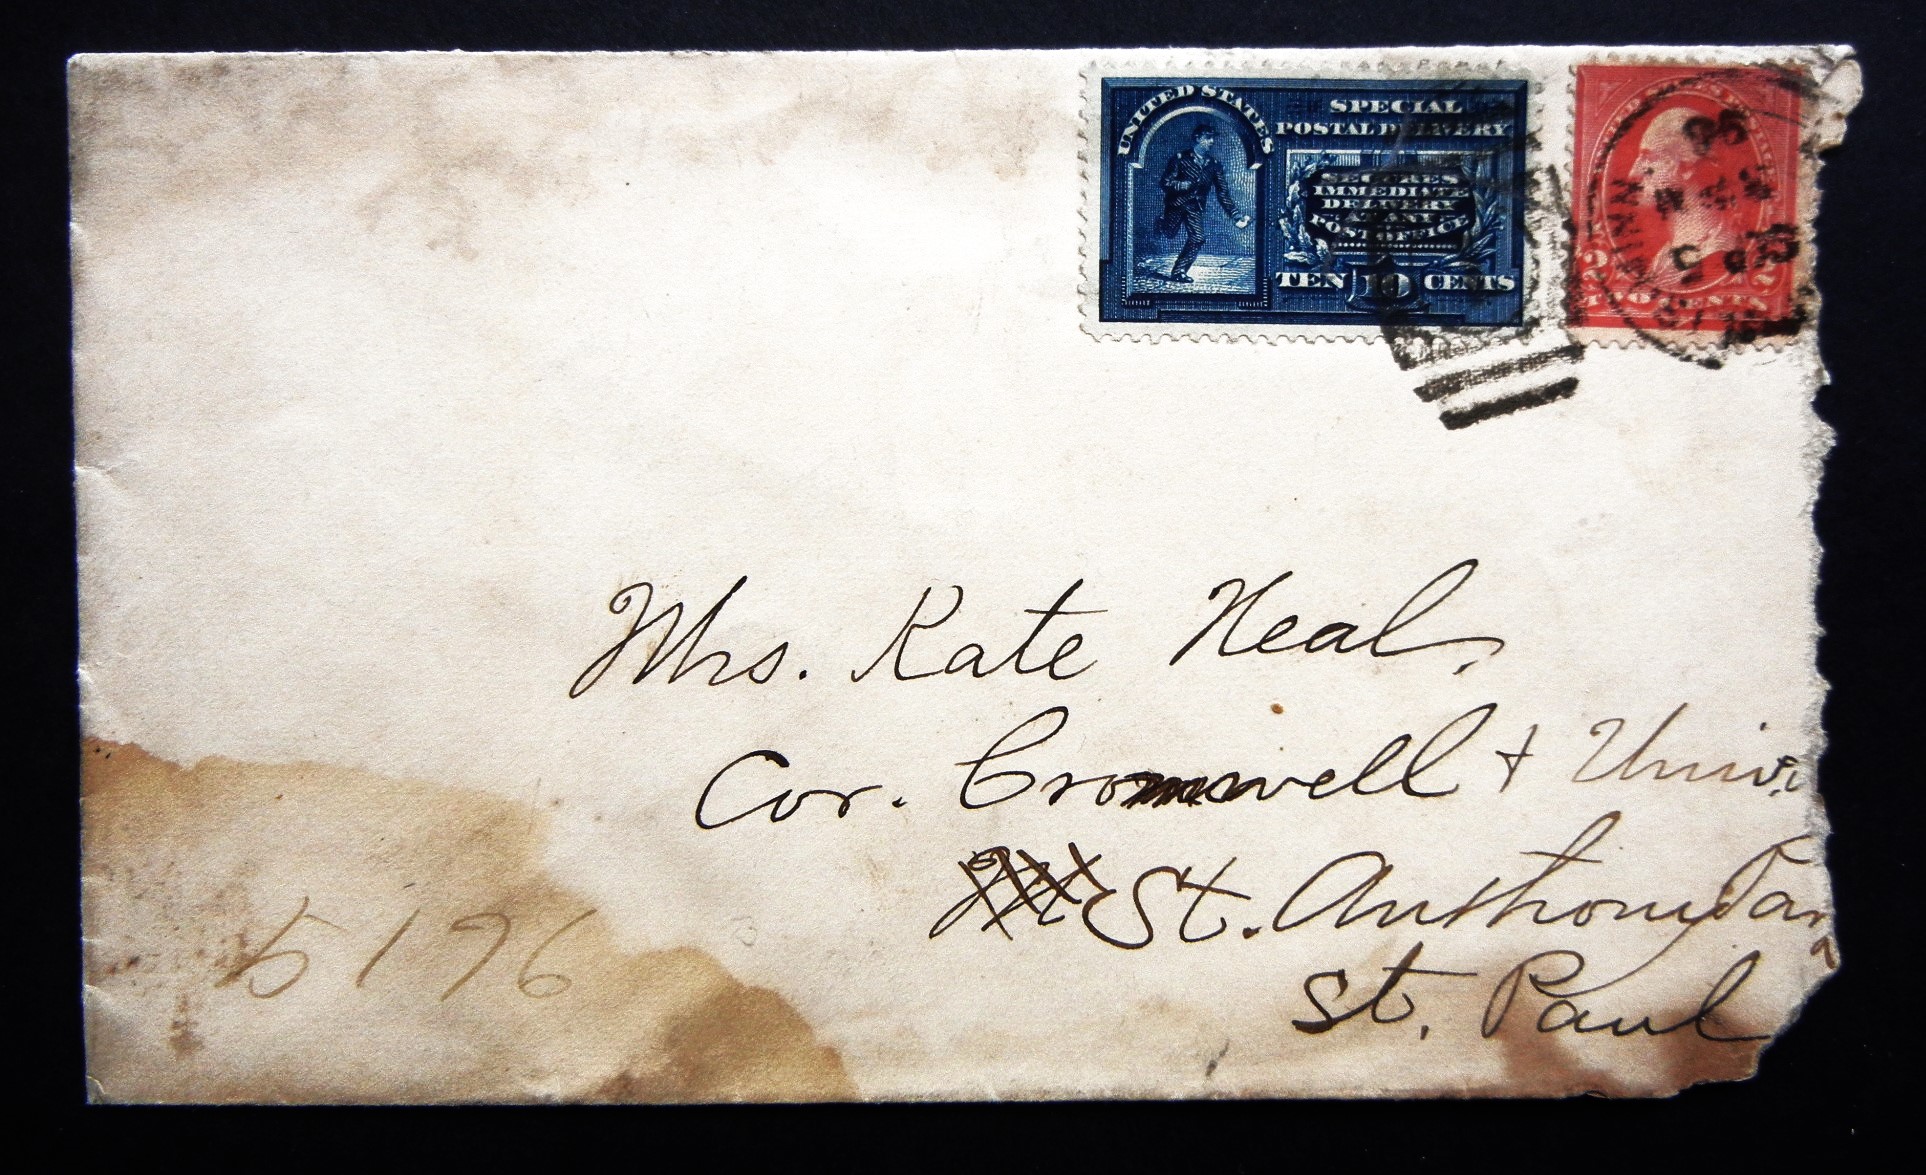 UNITED STATES
SPECIAL
POSTAL DELIVERY
SECURES
IMMEDIATE
DELIVERY
AT ANY
POST OFFICE
TEN 10 CENTS
2 2
CENTS
MINN.
96
5
Mrs. Kate Neal,
Cor. Cromwell + Univ.
St. Anthony Par
St. Paul
5196